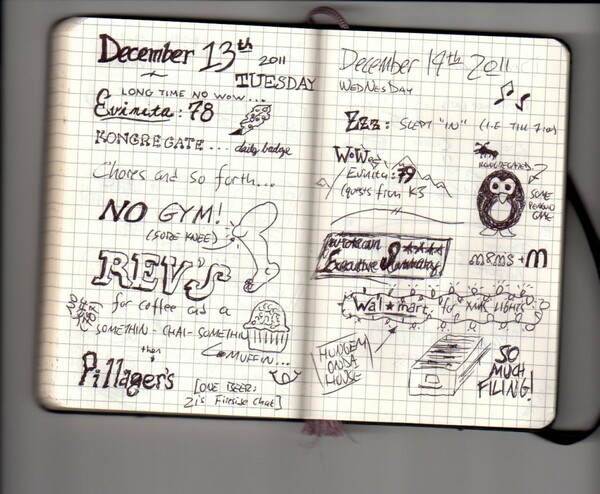 December 13th 2011
TUESDAY
LONG TIME NO WOW...
Evinita: 78
KONGREGATE... daily badge
Chores and so forth...
NO GYM!
(SORE KNEE)
REV'S
for coffee and a
SOMETHIN-CHAI-SOMETHIN
MUFFIN...
then
Pillager's
[ONE BEER:
Zi's Fireside Chat]
December 14th 2011
WEDNESDAY
Zzz: SLEPT "IN" (I.E. TILL 7:00)
WoW
Evinita: 79
(quests from K3
KONGREGATE?
SOME
PENGUIN
GAME
wrote an
Executive Summary
M&MS + M
Wal★mart, to XMAS LIGHTS
HUNGEM
ONDA
HOUSE
SO
MUCH
FILING!